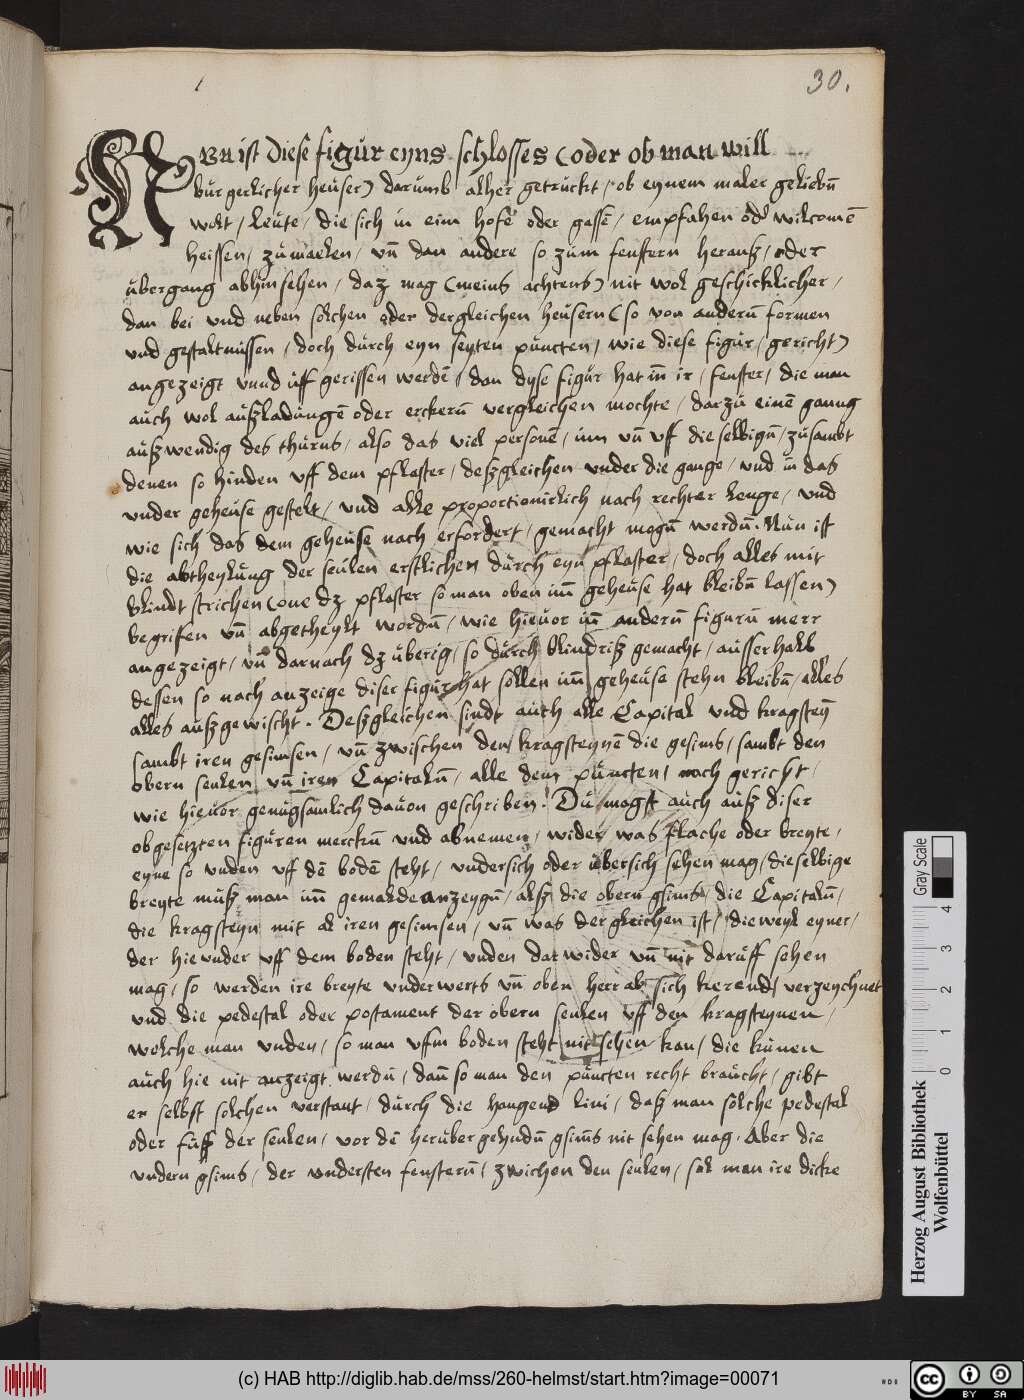 30.
Nun ist diese figur eyns schlosses (oder ob man will
burgerlicher heuser) darumb alher getruckt / ob eynem maler geliebn̄
wolt / leute / die sich in eim hofe oder gassē / empfahen od' wilcomē
heissen / zumalen / vn̄ dan andere so zum fenstern herauß / oder
ubergang abhin sehen / daz mag (meins achtens) nit wol geschicklicher /
dan bei vnd neben solchen oder dergleichen heusern (so von andern̄ formen
vnd gestaltnussen / doch durch eyn seyten puncten / wie diese figur / gericht)
angezeigt vnnd uff gerissen werdē / dan dyse figur hat in̄ ir / fenster / die man
auch wol außladungē oder erckern̄ vergleichen mochte / darzu einē ganng
außwendig des thurns / also das viel personē / inn vn̄ vff die selbign̄ / zusambt
denen so hinden vff dem pflaster / deßgleichen vnder die gange / vnd in̄ das
vnder geheuse gestelt / vnd alle proportionirlich nach rechter lenge / vnd
wie sich das dem geheuse nach erfordert / gemacht mogn̄ werdn̄. Nun ist
die abtheylung der seulen erstlichen durch eyn pflaster / doch alles mit
blindt strichen (one dz pflaster so man oben im̄ geheuse hat bleibn̄ lassen)
begrifen vn̄ abgetheylt wordn̄ / wie hieuor in̄ andern̄ figurn̄ merr
angezeigt / vn̄ darnach dz uberig / so durch blindriß gemacht / ausserhalb
dessen so nach anzeige diser figur hat sollen im̄ geheuse stehn bleibn̄ / alles
alles außgewischt. Deßgleichen sindt auch alle Capital vnd kragsteyn̄
sambt iren gesimsen / vn̄ zwischen den kragsteynē die gesims / sambt den
obern seulen vn̄ iren Capitaln̄ / alle dem puncten / nach gericht /
wie hieuor genugsamlich dauon geschriben. Du magst auch auß diser
obgesetzten figuren merckn̄ vnd abnemen / wider was flache oder breyte /
eyne so vnden vff dē bodē steht / vndersich oder ubersich sehen mag / die selbige
breyte muß man im̄ gemalde anzeygn̄ / alß die obern gsims / die Capitaln̄ /
die kragsteyn mit al iren gesimsen / vn̄ was dergleichen ist / dieweyl eyner /
der hievnder vff dem boden steht / vnden darwider vn̄ nit daruff sehen
mag / so werden ire breyte vnderwerts vn̄ oben herrab sich kerend / verzeychnet
vnd die pedestal oder postament der obern seulen vff den kragsteynen /
welche man vnden / so man vffm boden steht nit sehen kan / die kunen
auch hie nit anzeigt werdn̄ / dan̄ so man den puncten recht braucht / gibt
er selbst solchen verstant / durch die hangend lini / daß man solche pedestal
oder fuß der seulen / vor dē herubergehndn̄ gsim̄s nit sehen mag. Aber die
vndern gsims / der vndersten fenstern̄ / zwichen den seulen / sal man ire dicke
Gray Scale
0 1 2 3 4
Herzog August Bibliothek
Wolfenbüttel
(c) HAB http://diglib.hab.de/mss/260-helmst/start.htm?image=00071
cc BY SA